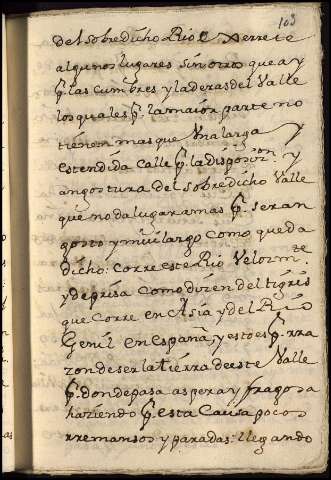 103
del sobredicho Rio e Xerrete
algunos lugares sin otro que ay
p.r las cumbres y laderas del Valle
los quales p.r la maior parte no
tienem mas que Vna larga y
estendida Calle p.r la disposiz.on y
angostura del sobredicho Valle
que no da lugar a mas p.r ser an
gosto y mui largo como queda
dicho: corre este Rio Veloz m.te
y de prisa como dizen del tigris
que corre en Asia y del Rio
Genil en España y esto es p.r rra
zon de ser la tierra de este Valle
p.r donde pasa aspera y fragosa
haziendo p.r esta Causa pocos
rremansos y paradas: llegando